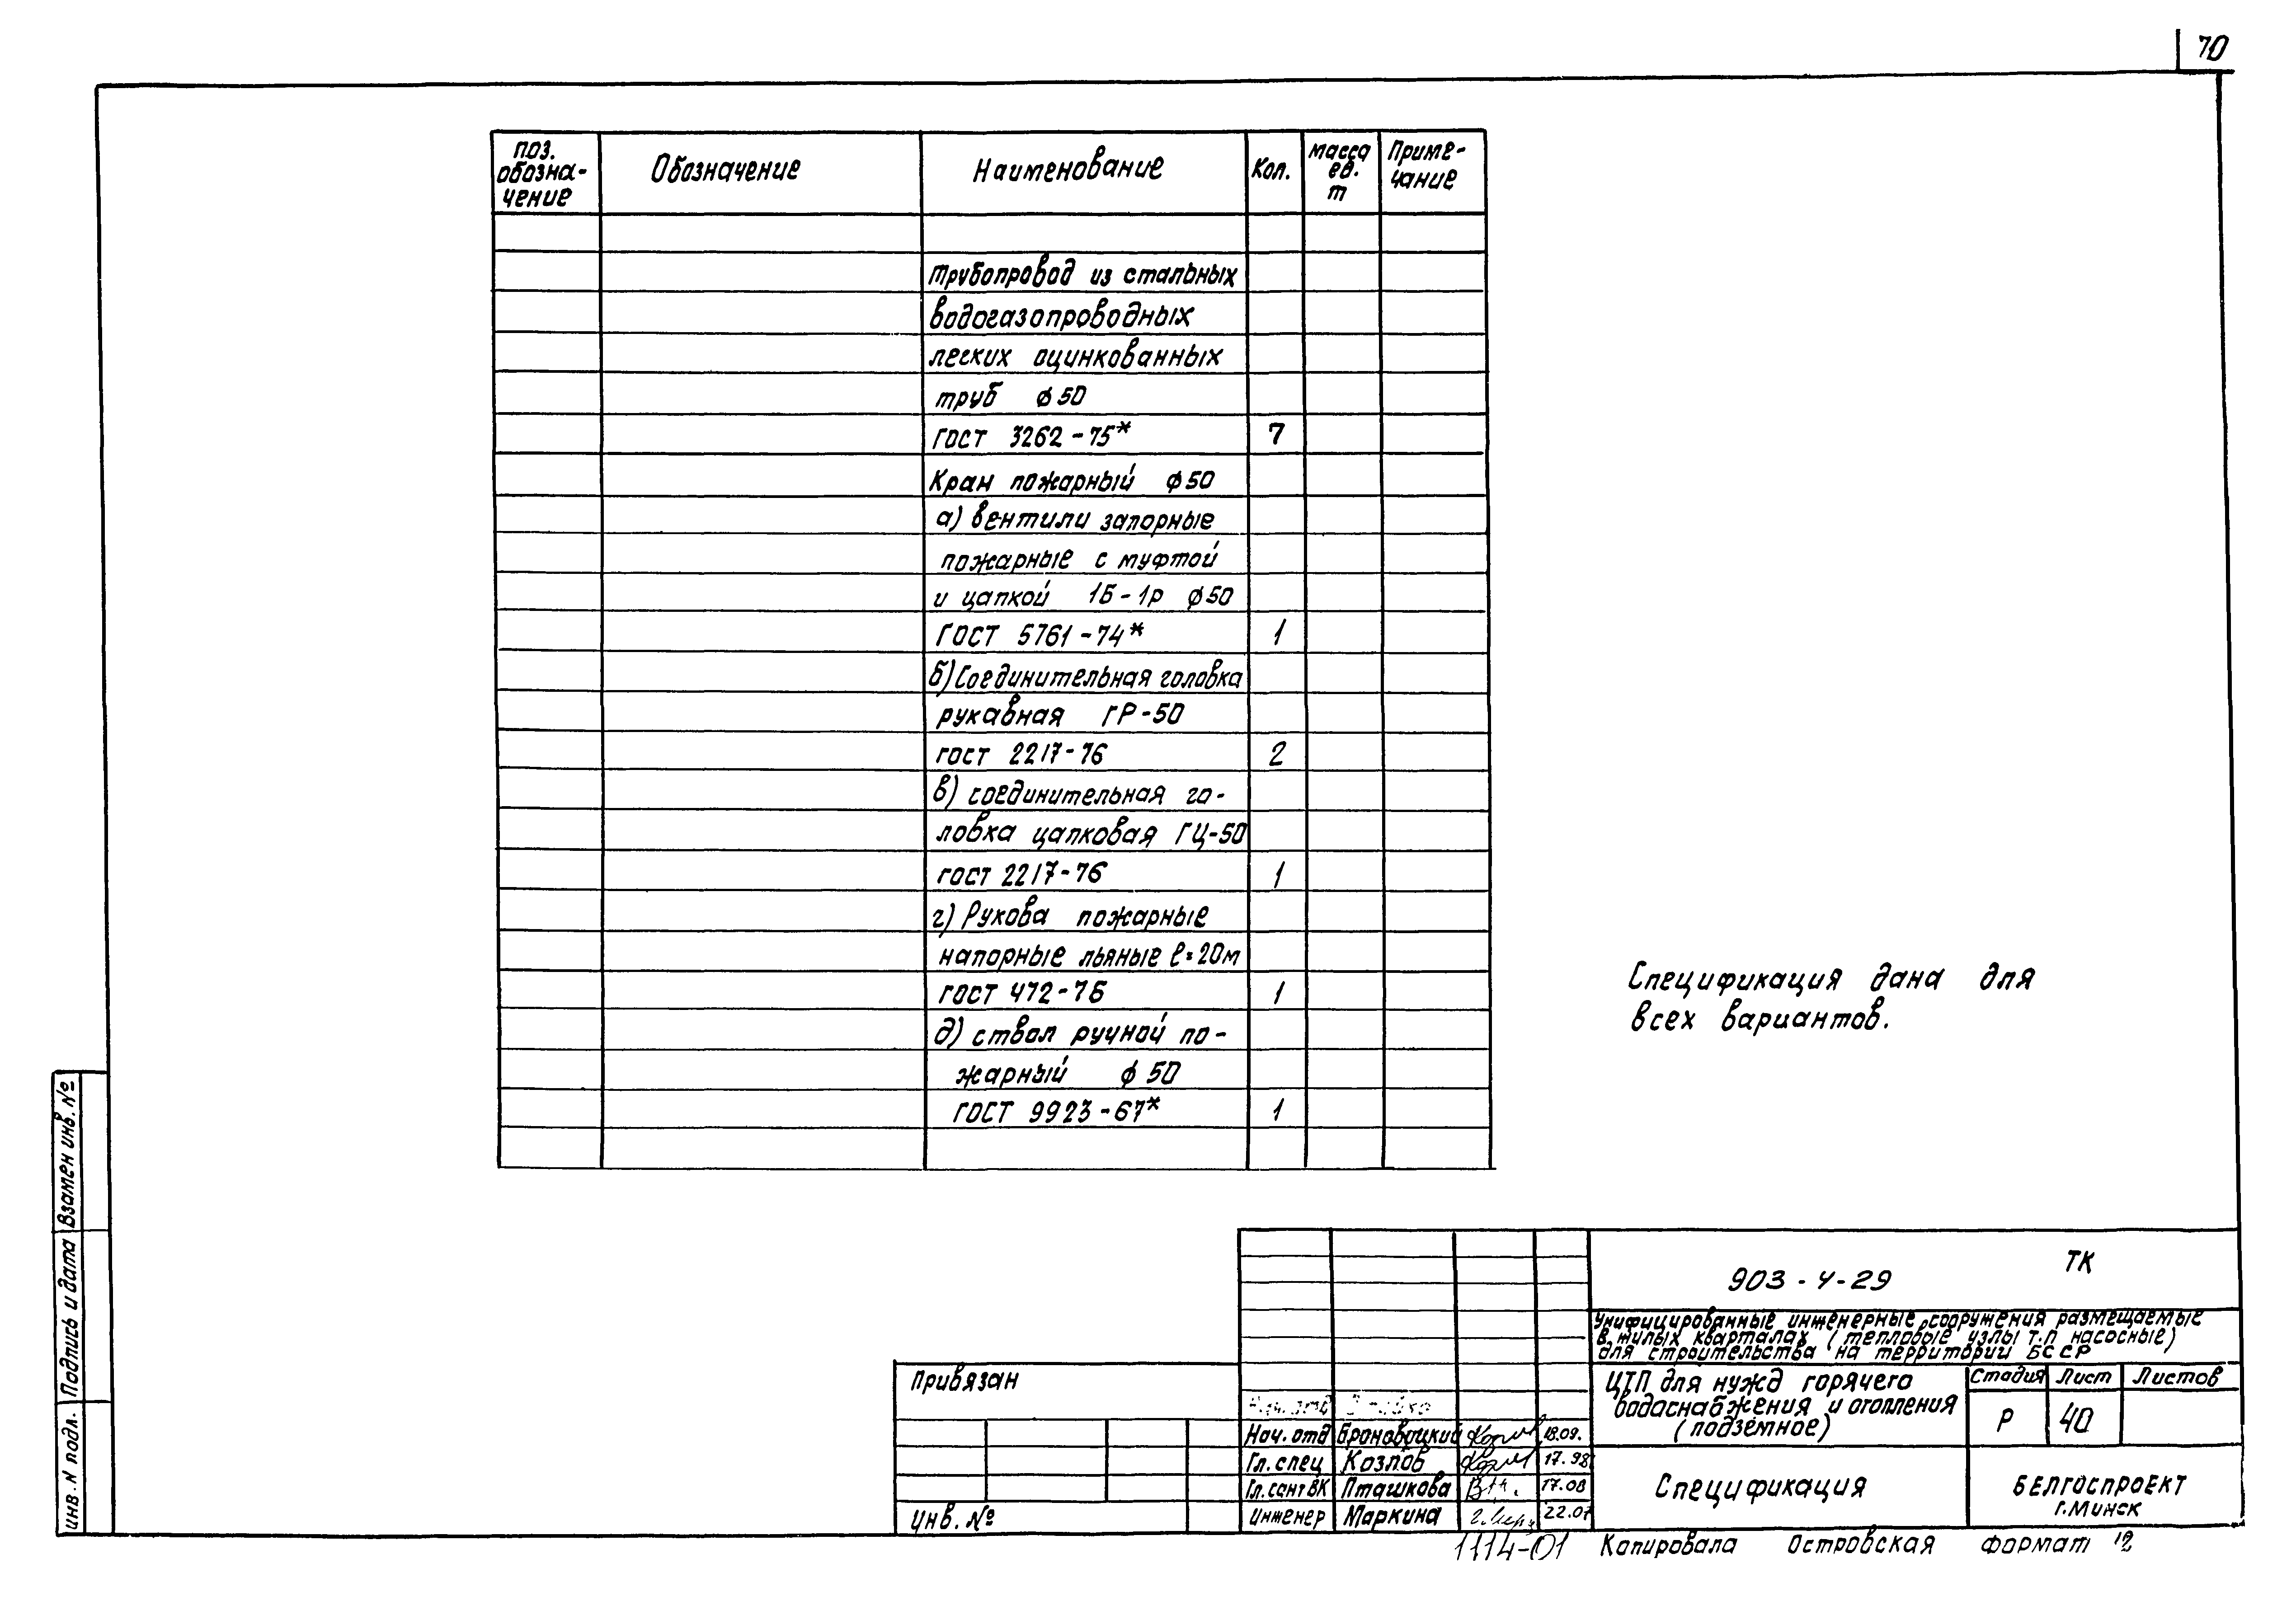 70
поз. обозна-чение Обозначение Наименование Кол. масса ев. т Приме-чание
Трубопровод из стальных
водогазопроводных
легких оцинкованных
труб ф50
ГОСТ 3262-75* 7
Кран пожарный ф50
а) вентили запорные
пожарные с муфтой
и цапкой 1Б-1р ф50
ГОСТ 5761-74* 1
б) Соединительная головка
рукавная ГР-50
гост 2217-76 2
в) соединительная го-
ловка цапковая ГЦ-50
гост 2217-76 1
г) Рукова пожарные
напорные льяные ℓ=20м
гост 472-75 1
д) ствол ручной по-
жарный ф50
ГОСТ 9923-67* 1
Спецификация дана для
всех вариантов.
Взамен инв. №
Подпись и дата
инв. N подл.
Привязан
Инв. №
903-4-29 ТК
Унифицированные инженерные сооружения размещаемые
в жилых кварталах (тепловые узлы т.п насосные)
для строительства на территории БССР
ЦТП для нужд горячего
водоснабжения и отопления
(подземное)
Стадия Лист Листов
Р 40
Нач. отд Броновицкий 18.09.
Гл. спец Козлов 17.98
Гл. сант ВК Пташкова 17.08
Инженер Маркина 22.07
Спецификация
БЕЛГОСПРОЕКТ
г. Минск
1114-01 Копировала Островская формат 12